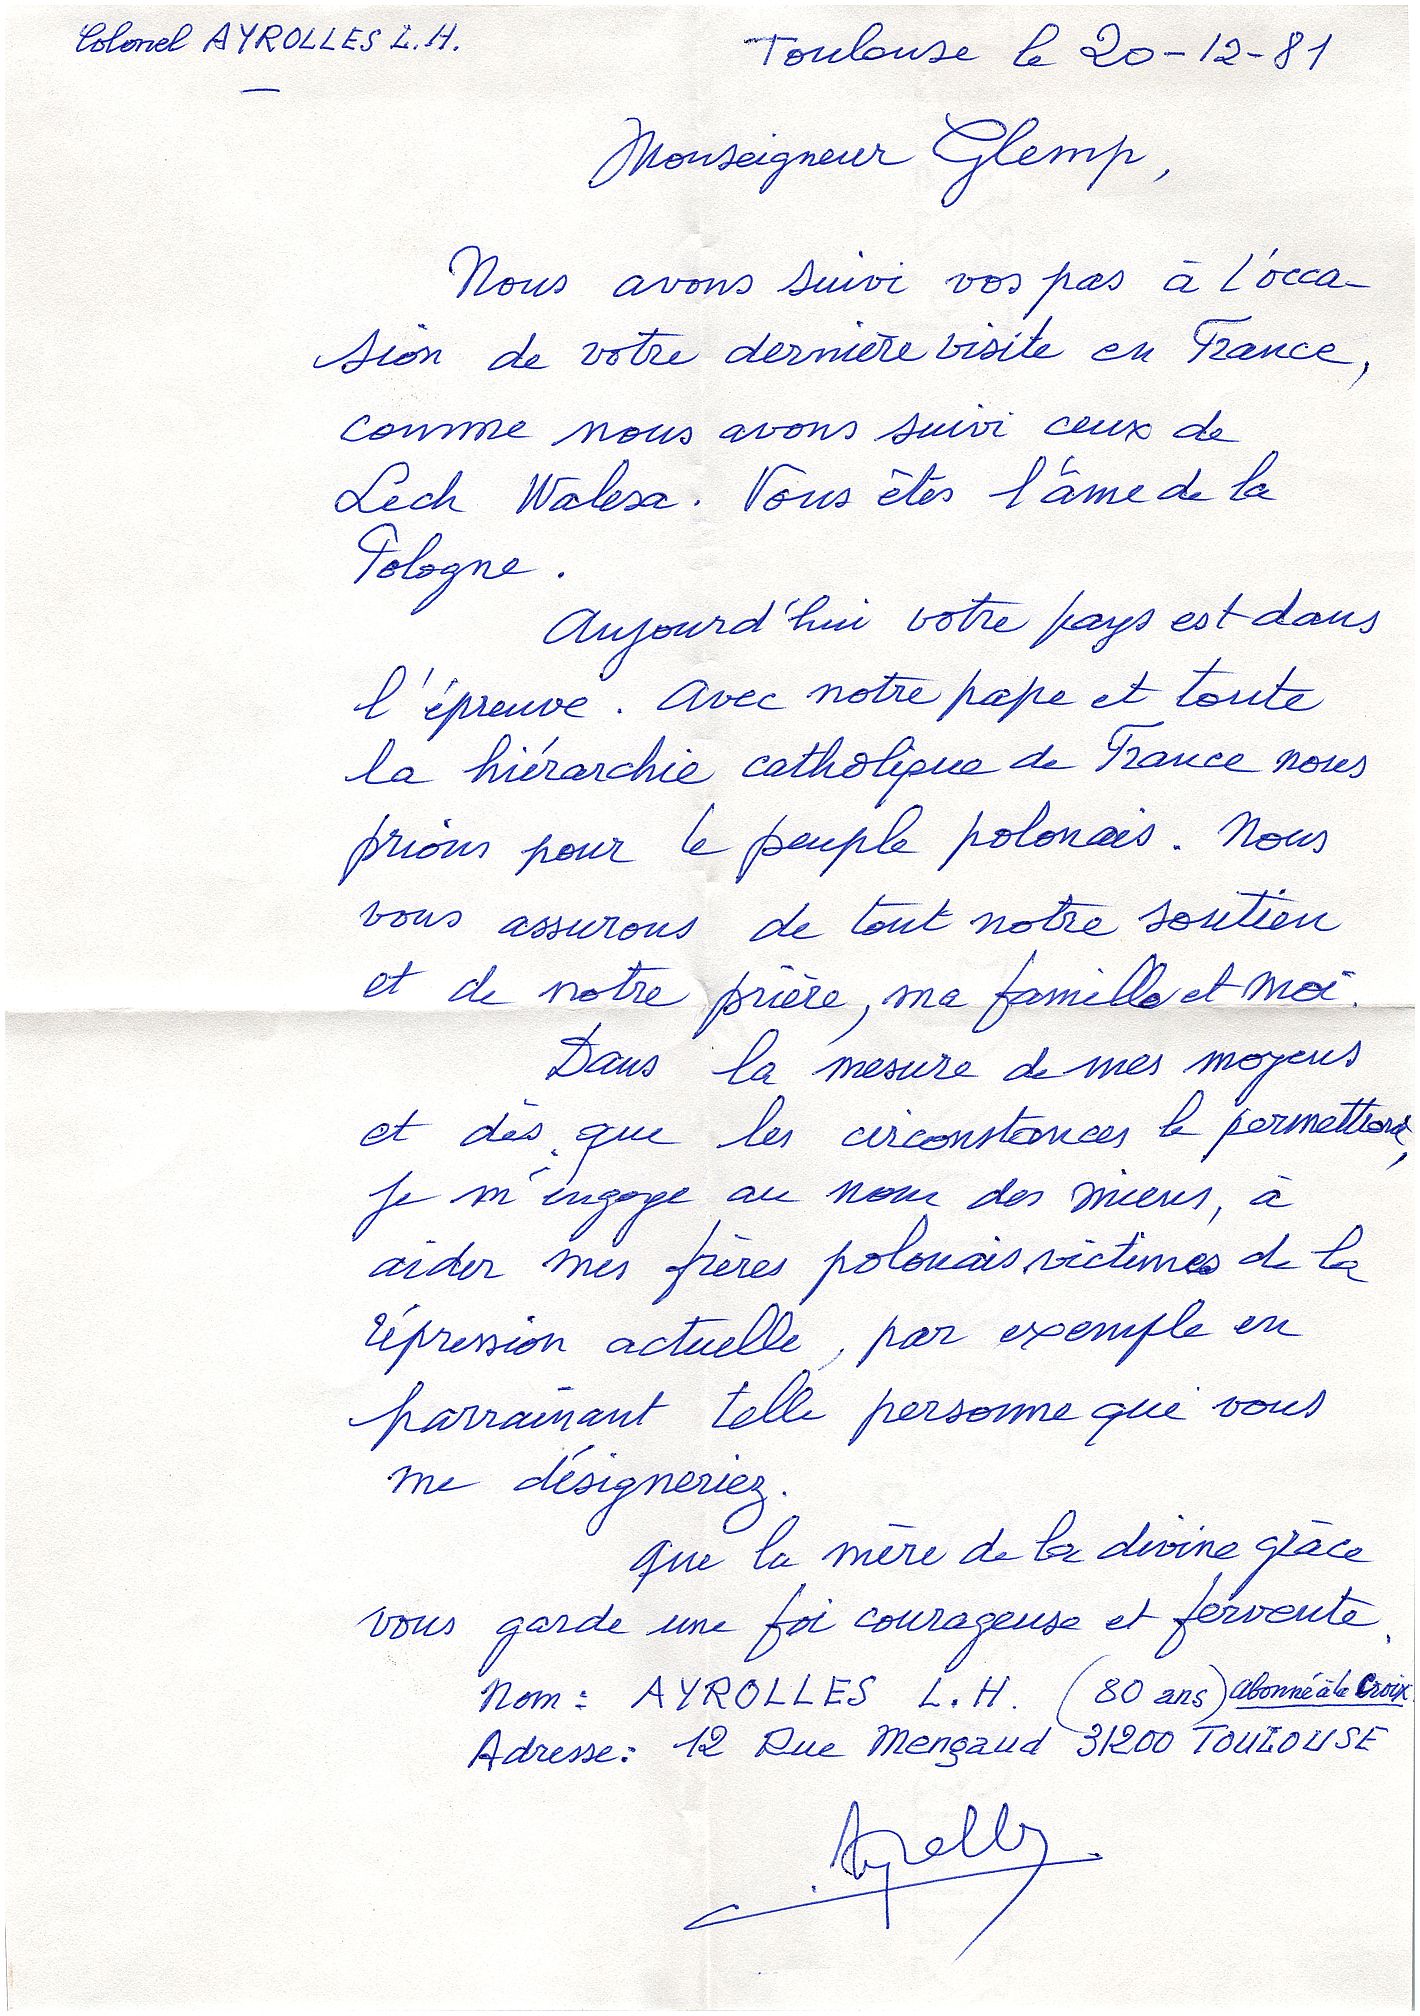 Colonel AYROLLES L.H.
Toulouse le 20-12-81
Monseigneur Glemp,
Nous avons suivi vos pas à l'occa-
sion de votre dernière visite en France,
comme nous avons suivi ceux de
Lech Walesa. Vous êtes l'âme de la
Pologne.
Aujourd'hui votre pays est dans
l'épreuve. Avec notre pape et toute
la hiérarchie catholique de France nous
prions pour le peuple polonais. Nous
vous assurons de tout notre soutien
et de notre prière, ma famille et moi.
Dans la mesure de mes moyens
et dès que les circonstances le permettront,
je m'engage au nom des miens, à
aider mes frères polonais victimes de la
répression actuelle, par exemple en
parrainant telle personne que vous
me désigneriez.
Que la mère de la divine grâce
vous garde une foi courageuse et fervente.
Nom: AYROLLES L.H. (80 ans) abonné à la Croix.
Adresse: 12 Rue Mengaud 31200 TOULOUSE
Ayrolles